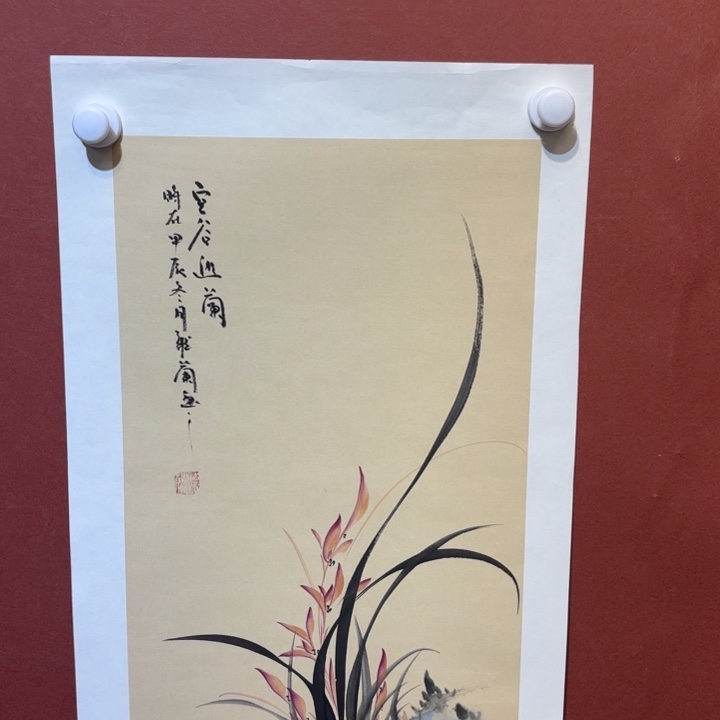 空谷幽蘭
時在甲辰冬月
蘭